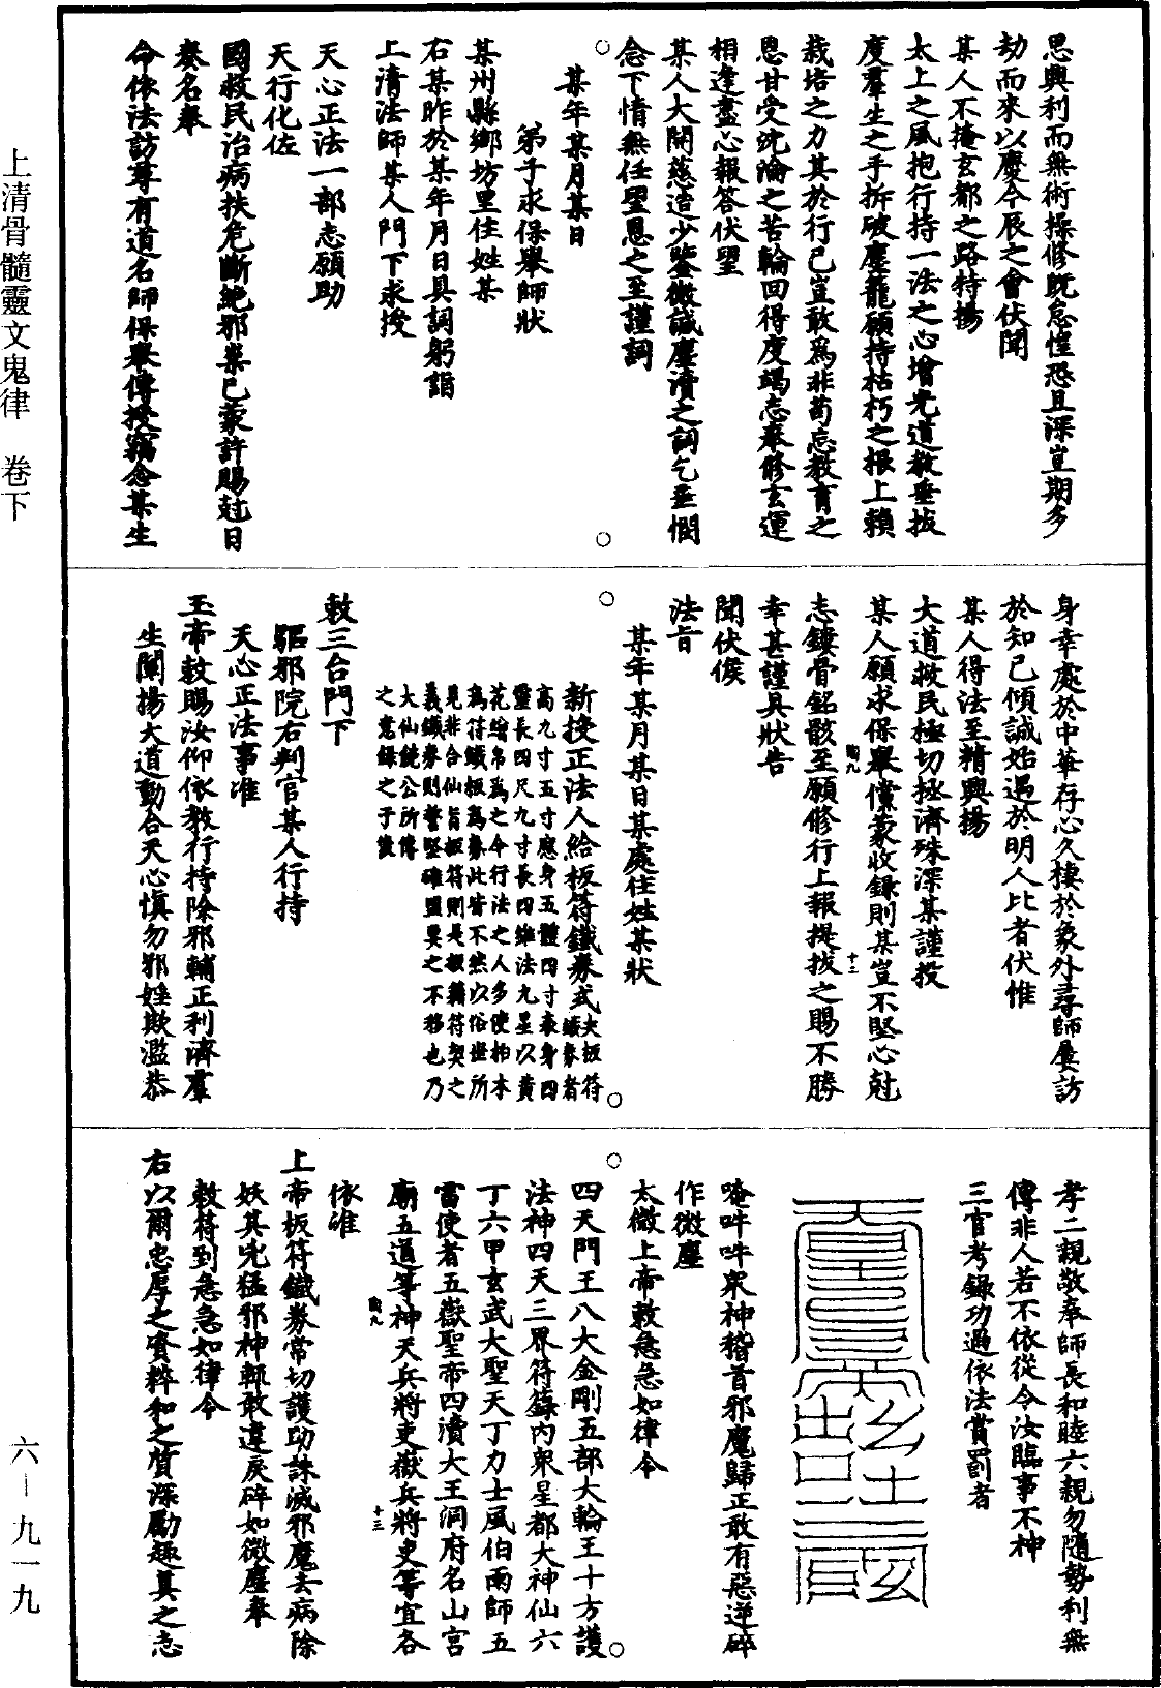 思興利而無術操修既怠惶恐且深豈期多
劫而來以慶今辰之會伏聞
某人不掩玄都之路特揚
太上之風抱行持一法之心增光道教垂拔
度羣生之手拆破塵籠願持枯朽之根上賴
栽培之力其於行己豈敢為非苟忘教育之
恩甘受沈淪之苦輪回得度竭志奉修玄運
相逢盡心報答伏望
某人大開慈造少鑒微誠塵瀆之詞乞垂憫
念下情無任望恩之至謹詞
某年某月某日
弟子求保舉師狀
某州縣鄉坊里住姓某
右某昨於某年月日具詞躬詣
上清法師某人門下求授
天心正法一部志願助
天行化佐
國救民治病扶危斷絕邪祟已蒙許賜尅日
奏名奉
令依法訪尋有道名師保舉傳授竊念某生
身幸處於中華存心久棲於象外尋師屢訪
於知己傾誠始遇於明人比者伏惟
某人得法至精興揚
大道救民極切拯濟殊深某謹投
某人願求保舉儻蒙收錄則某豈不堅心尅
志鏤骨銘骸至願修行上報提拔之賜不勝
幸甚謹具狀告
聞伏候
法旨
某年某月某日某處住姓某狀
新授正法人給板符鐵券式夫板符鐵券者
高九寸五寸應身五體四寸表身四
靈長四尺九寸長四維法九星以黃
花繒帛為之今行法之人多使柏木
為符鐵板為券此皆不然以俗世所
見非合仙旨板符則是板籍符契之
義鐵券則誓堅確盟要之不移也乃
大仙饒公所傳
之意錄之于後
敕三台門下
驅邪院右判官某人行持
天心正法事准
玉帝敕賜汝仰依教行持除邪輔正利濟羣
生闡揚大道動合天心慎勿邪婬欺濫恭
孝二親敬奉師長和睦六親勿隨勢利無
傳非人若不依從令汝臨事不神
三官考錄功過依法賞罰者
唵吽吽眾神稽首邪魔歸正敢有惡逆碎
作微塵
太微上帝敕急急如律令
四天門王八大金剛五部大輪王十方護
法神四天三界符籙內眾星都大神仙六
丁六甲玄武大聖天丁力士風伯雨師五
雷使者五嶽聖帝四瀆大王洞府名山宮
廟五道等神天兵將吏嶽兵將吏等宜各
依准
上帝板符鐵券常切護功誅滅邪魔去病除
妖其兇猛邪神輒敢違戾碎如微塵奉
敕符到急急如律令
右以爾忠厚之資粹和之質深勵趣真之志
上清骨髓靈文鬼律 卷下
六—九一九